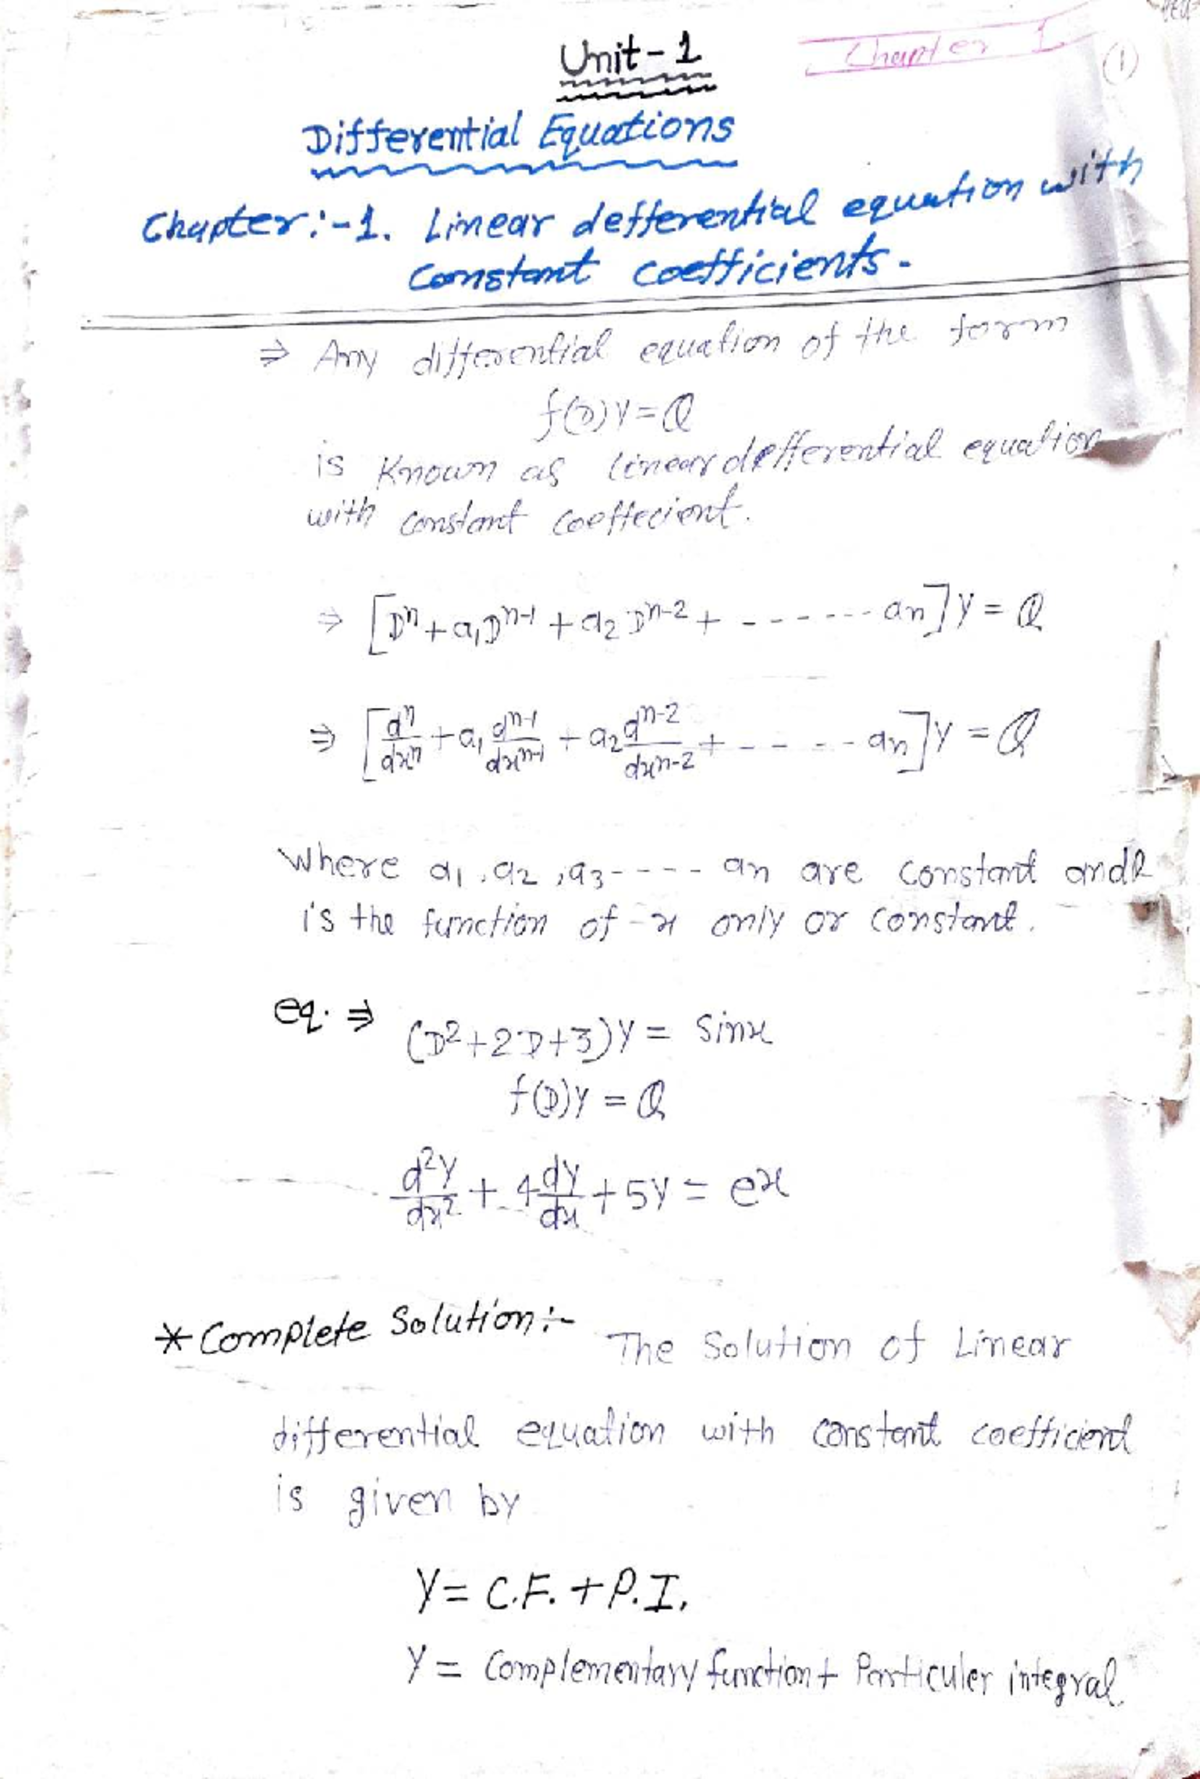 Unit-1
Chapter 1
(1)
Differential Equations
Chapter:-1. Linear defferential equation with
Constant coefficients.
⇒ Any differential equation of the form
f(D)y=Q
is Known as linear defferential equation
with constant coeffecient.
⇒ [Dⁿ+a₁Dⁿ⁻¹+a₂Dⁿ⁻²+ ------- an]y=Q
⇒ [dⁿ/dxⁿ+a₁dⁿ⁻¹/dxⁿ⁻¹+a₂dⁿ⁻²/dxⁿ⁻²+ - - - - - an]y=Q
Where a₁,a₂,a₃---- an are Constant andQ
is the function of -x only or constant.
eq. ⇒ (D²+2D+3)y= Sinx
f(D)y=Q
d²y/dx²+4dy/dx+5y=eˣ
*Complete Solution:- The Solution of Linear
differential equation with constant coefficient
is given by
y= C.F.+P.I.
y= Complementary function+ Particuler integral